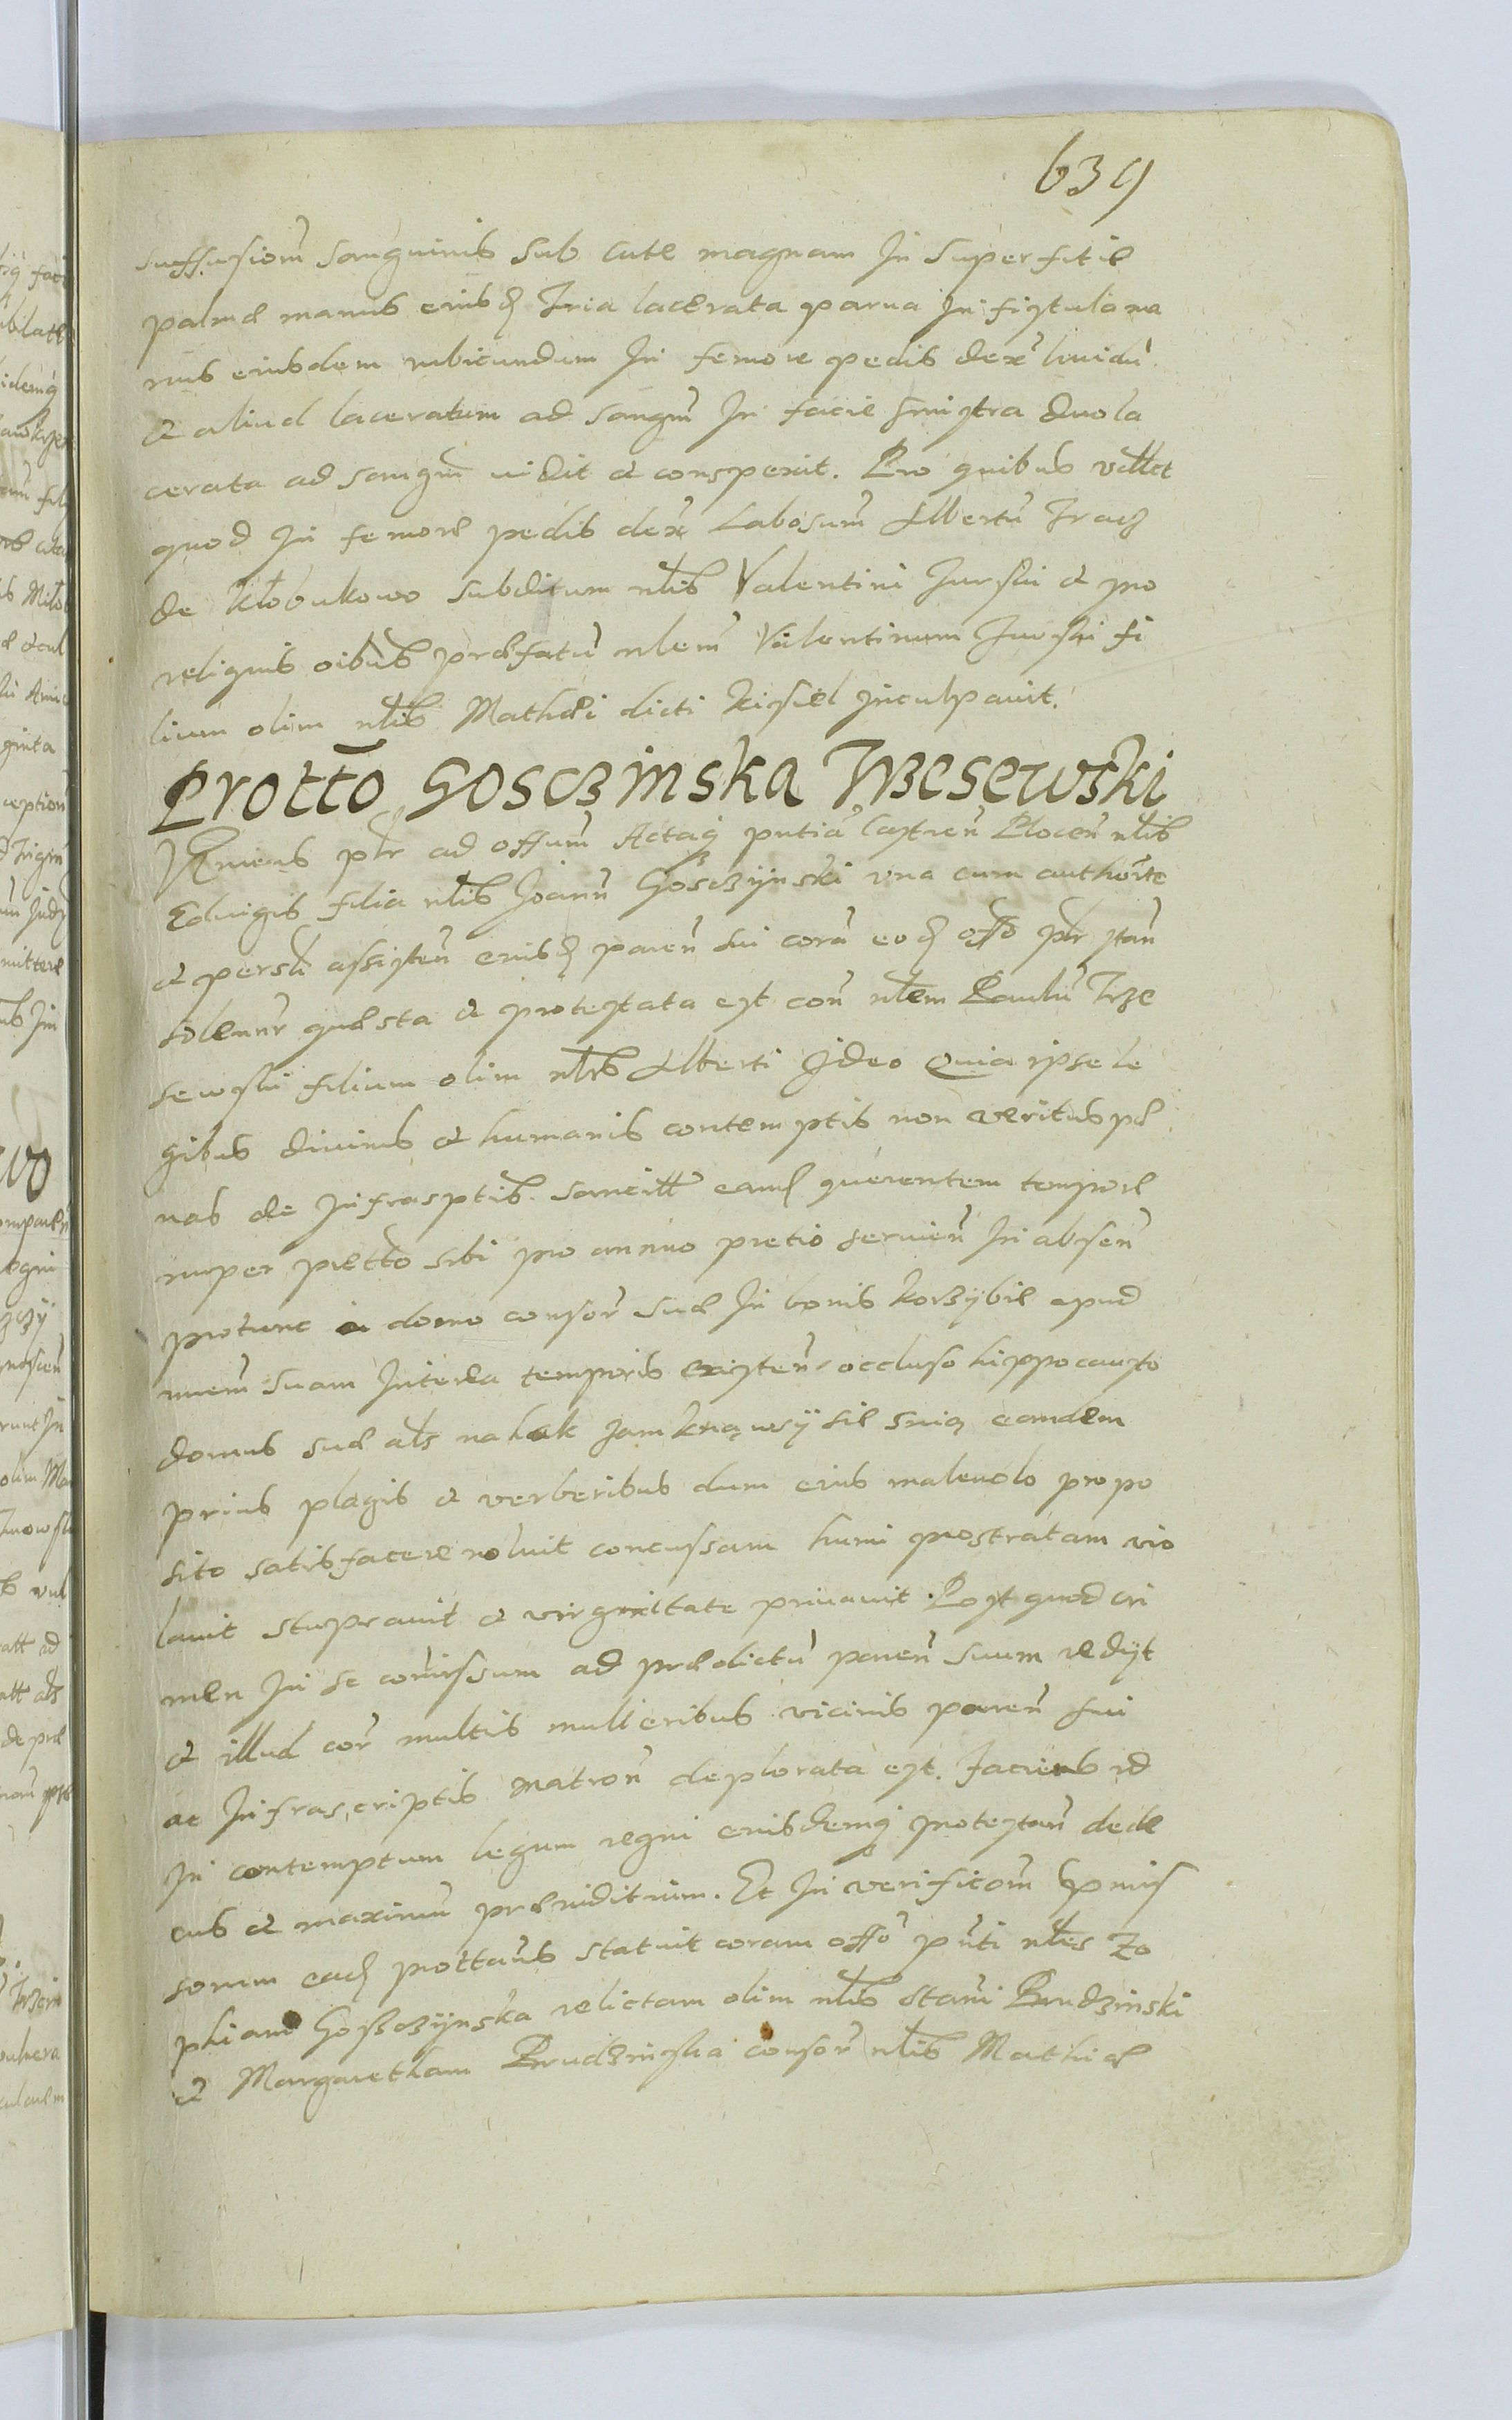 639
suffusiom̃ sanguinis sub cute magnam In superfitie
palmæ manus eiusd Tria lacerata parua In fistula ma
nus eiusdem rubicundum In femore pedis dex̃ liuidũ
& aliud laceratum ad sangm̃ In facie sinistra duo la
cerata ad sangm̃ uidit & conspexit. Pro quibus
quod In femore pedis dex̃ Labosum̃ Albertũ Tracz
de Kłobukowo subditum nlis Valentini Jurski & pro
reliquis oibus præfatũ nlem̃ Valentinum Jurski fi
lium olim nlis Mathæi dicti Kisiel inculpauit.
Protto Gosczinska Trzesewski
Veniens plr ad offum̃ Actaq pntiã Castren̄ Plocen̄ nlis
Eduigis filia nlis Joann̄ Gosczijnski vna cum authorte
& persli assisten̄ eiusd paren̄ sui corã eod offo plr stan̄
solennr quæsta & protestata est con̄ nlem Paulũ Trze
sewski filium olim nlis Alberti Ideo Quia ipse le
gibus diuinis & humanis contemptis non veritus pæ
nas de Infrasptis sancitt eamd querentem tempore
nuper prætto sibi pro annuo pretio seruien̄ In absen̄
protunc a domo consor̃ suæ In bonis Korzybie apud
nuem̃ suam Interea temporis existen̄ occluso hippocausto
domus suæ als na hak zamknąwsÿ sie snią eamdem
prius plagis & verberibus dum eius maleuolo propo
sito satisfacere noluit concussam humi prostratam vio
lauit stuprauit & virginitate priuauit. Post quod cri
men In se com̃issum ad prædictũ paren̄ suum redÿt
& illud cor̃ multis mulieribus vicinis paren̄ sui
ac Infrascriptis matron̄ deplorata est. Faciens id
In contemptum legum regni eiusdemq protestan̄ dede
cus & maximũ præiuditium. Et In verificom̃ præmis
sorum ead prottans statuit coram offo pnti nles Zo
phiam Goszczijnska relictam olim nlis Stani Brudzinski
& Margaretham Brudzinska consor̃ nlis Mathiæ